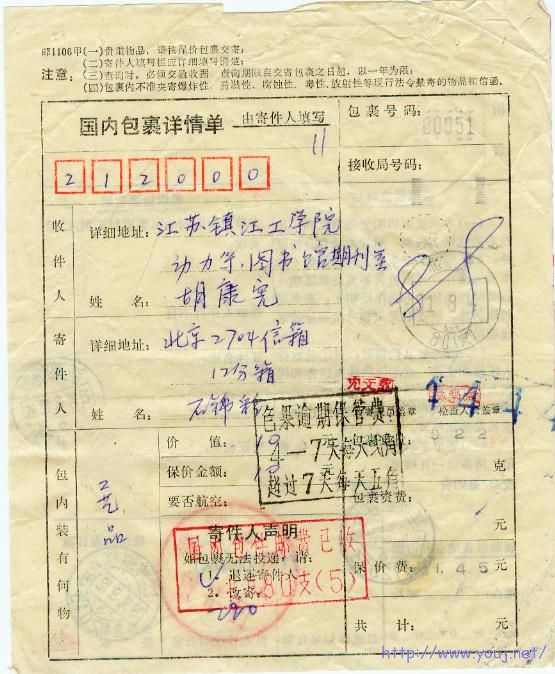 邮1106甲(一)贵重物品，请按保价包裹交寄；
(二)寄件人填写栏应详细填写清楚；
注意： (三)查询时，必须交验收据，查询期限自交寄包裹之日起，以一年为限；
(四)包裹内不准夹寄爆炸性、易燃性、腐蚀性、毒性、放射性等现行法令禁寄的物品和信函。
国内包裹详情单 由寄件人填写
11
包裹号码：
00051
接收局号码：
212000
收件人
详细地址：江苏镇江工学院
动力系，图书馆期刊室
姓 名：胡康
88
寄件人
详细地址：北京2704信箱
12分箱
姓 名：石锦
包裹逾期保管费：
4—7天每天贰角
超过7天每天五角
检查人员盖章
价 值： 元
保价金额： 元
要否航空：
克
包裹资费： 元
保价费： 1.45元
共 计： 元
包内装有何物
工艺品
寄件人声明
如包裹无法投递，请：
1. 退还寄件人
2. 改寄：
国内包裹邮费已收
80支(5)
http://www.youj.net/